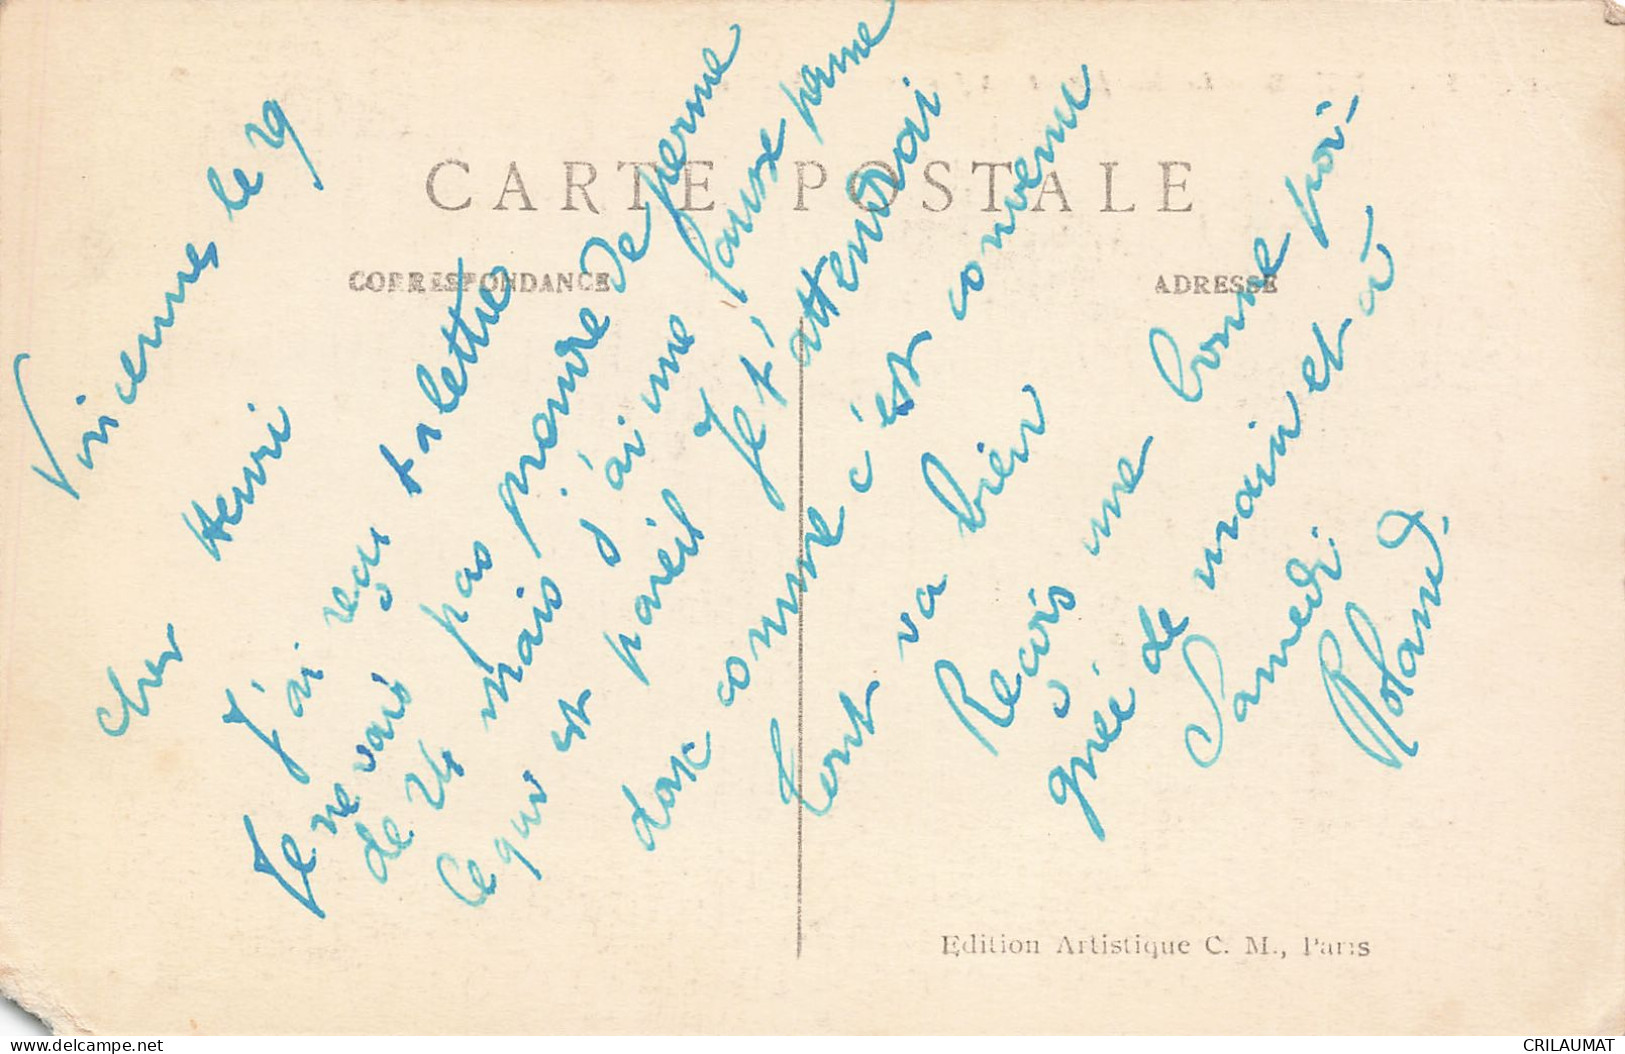 CARTE POSTALE
CORRESPONDANCE
ADRESSE
Vincennes le 29
Cher Henri
J'ai reçu ta lettre
Je ne vais pas prendre de perme
de 24 mais j'ai une fausse perme
Ce qui est pareil Je t'attendrai
donc comme c'est convenu
tout va bien
Recois une bonne poi-
gnée de main et à
Samedi.
Roland.
Edition Artistique C. M., Paris
www.delcampe.net
CRILAUMAT